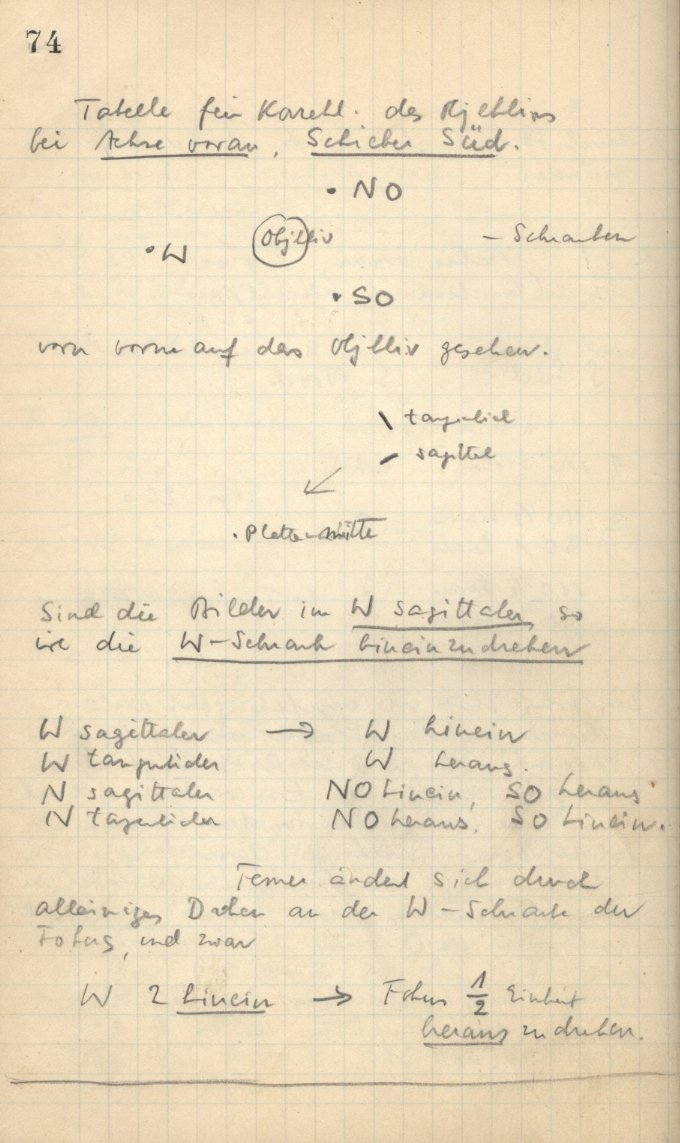 74
Tabelle für Korrekt. des Objektivs
bei Achse voran, Schieber Süd.
• NO
Objektiv
– Schrauben
• W
• SO
von vorne auf das Objektiv gesehen.
tangential
sagittal
. Plattenmitte
Sind die Bilder im W sagittaler, so
ist die W-Schraube hineinzudrehen
W sagittaler → W hinein
W tangentialer W heraus.
N sagittaler NO hinein, SO heraus
N tangentialer NO heraus, SO hinein.
Ferner ändert sich durch
alleiniges Drehen an der W-Schraube der
Fokus, und zwar
W 2 hinein → Fokus 1/2 Einheit
heraus zu drehen.